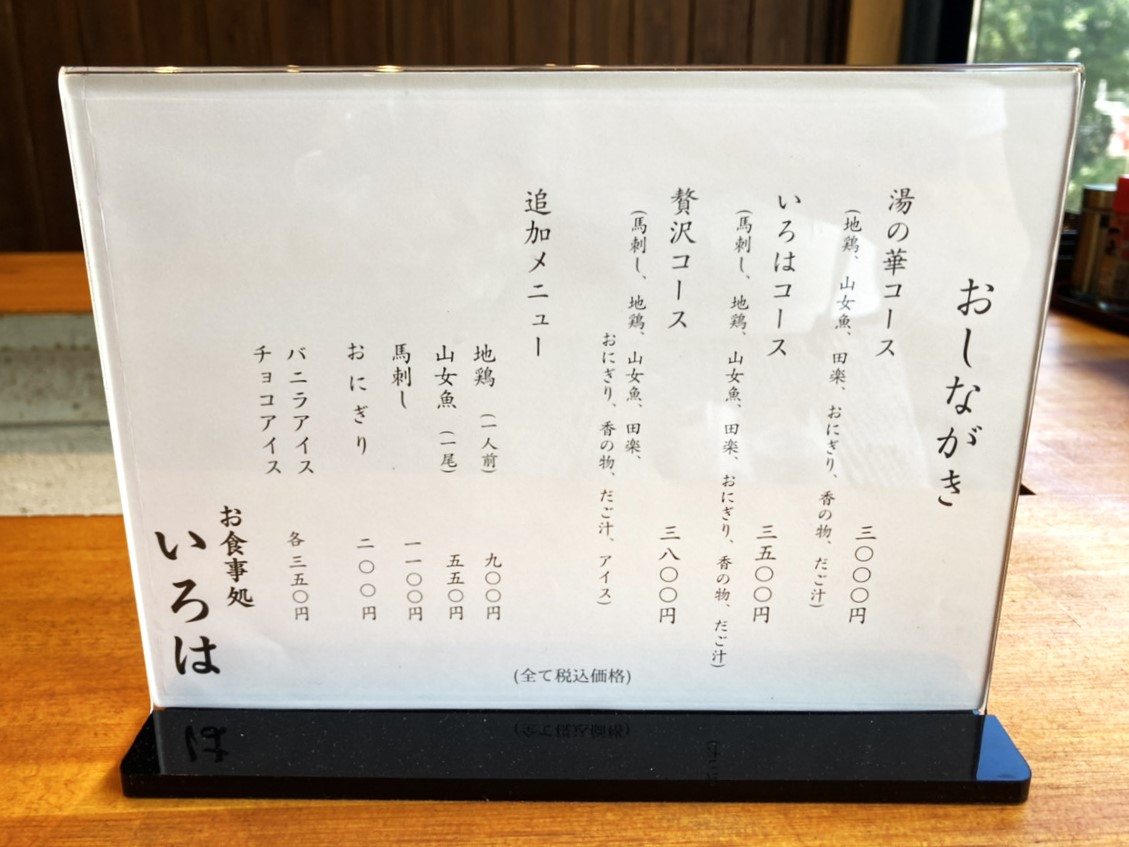 おしながき
湯の華コース 三〇〇〇円
(地鶏、山女魚、田楽、おにぎり、香の物、だご汁)
いろはコース 三五〇〇円
(馬刺し、地鶏、山女魚、田楽、おにぎり、香の物、だご汁)
贅沢コース 三八〇〇円
(馬刺し、地鶏、山女魚、田楽、
おにぎり、香の物、だご汁、アイス)
追加メニュー
地鶏 (一人前) 九〇〇円
山女魚 (一尾) 五五〇円
馬刺し 一一〇〇円
おにぎり 二〇〇円
バニラアイス 各三五〇円
チョコアイス
お食事処
いろは
(全て税込価格)